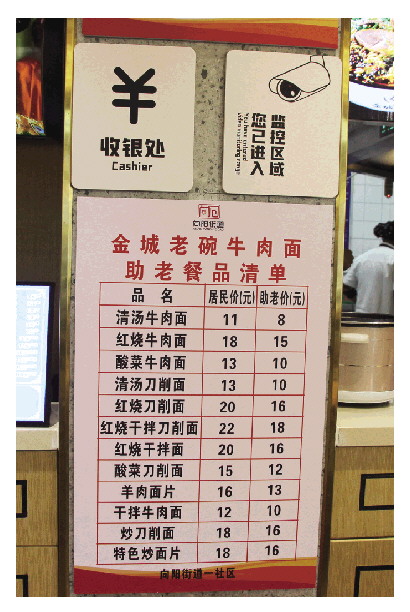 ¥
收银处
Cashier
您已进入
监控区域
You have entered
video monitoring range
向阳街道
金城老碗牛肉面
助老餐品清单
品 名 居民价(元) 助老价(元)
清汤牛肉面 11 8
红烧牛肉面 18 15
酸菜牛肉面 13 10
清汤刀削面 13 10
红烧刀削面 20 16
红烧干拌刀削面 22 18
红烧干拌面 20 16
酸菜刀削面 15 12
羊肉面片 16 13
干拌牛肉面 12 10
炒刀削面 18 16
特色炒面片 18 16
向阳街道一社区